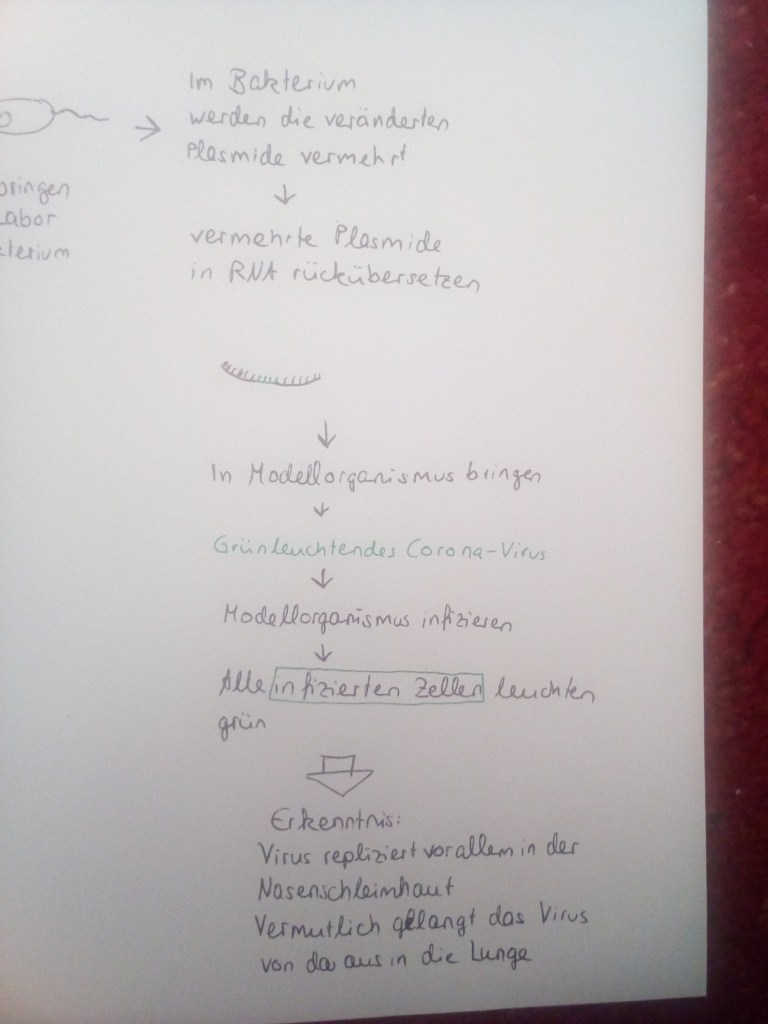 Im Bakterium
werden die veränderten
Plasmide vermehrt
bringen
Labor
kterium
vermehrte Plasmide
in RNA rückübersetzen
In Modellorganismus bringen
Grünleuchtendes Corona-Virus
Modellorganismus infizieren
Alle infizierten Zellen leuchten
grün
Erkenntnis:
Virus repliziert vorallem in der
Nasenschleimhaut
Vermutlich gelangt das Virus
von da aus in die Lunge